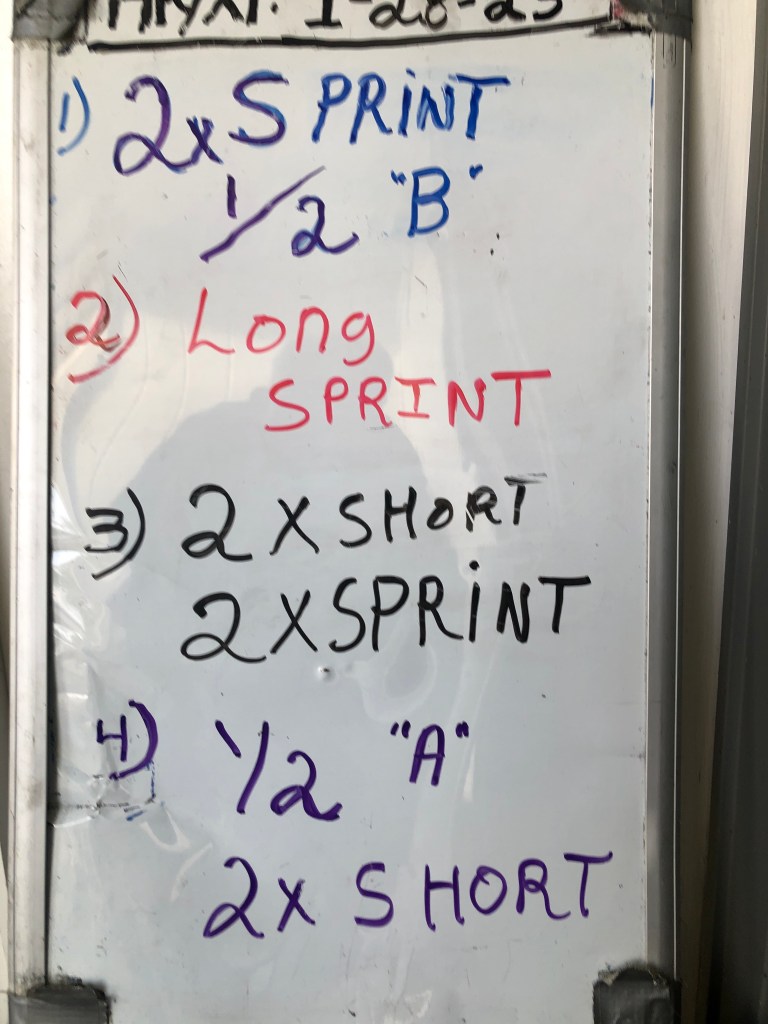 1-28-23
1) 2x SPRINT
1/2 "B"
2) Long
SPRINT
3) 2 X SHORT
2 X SPRINT
4) 1/2 "A"
2x SHORT